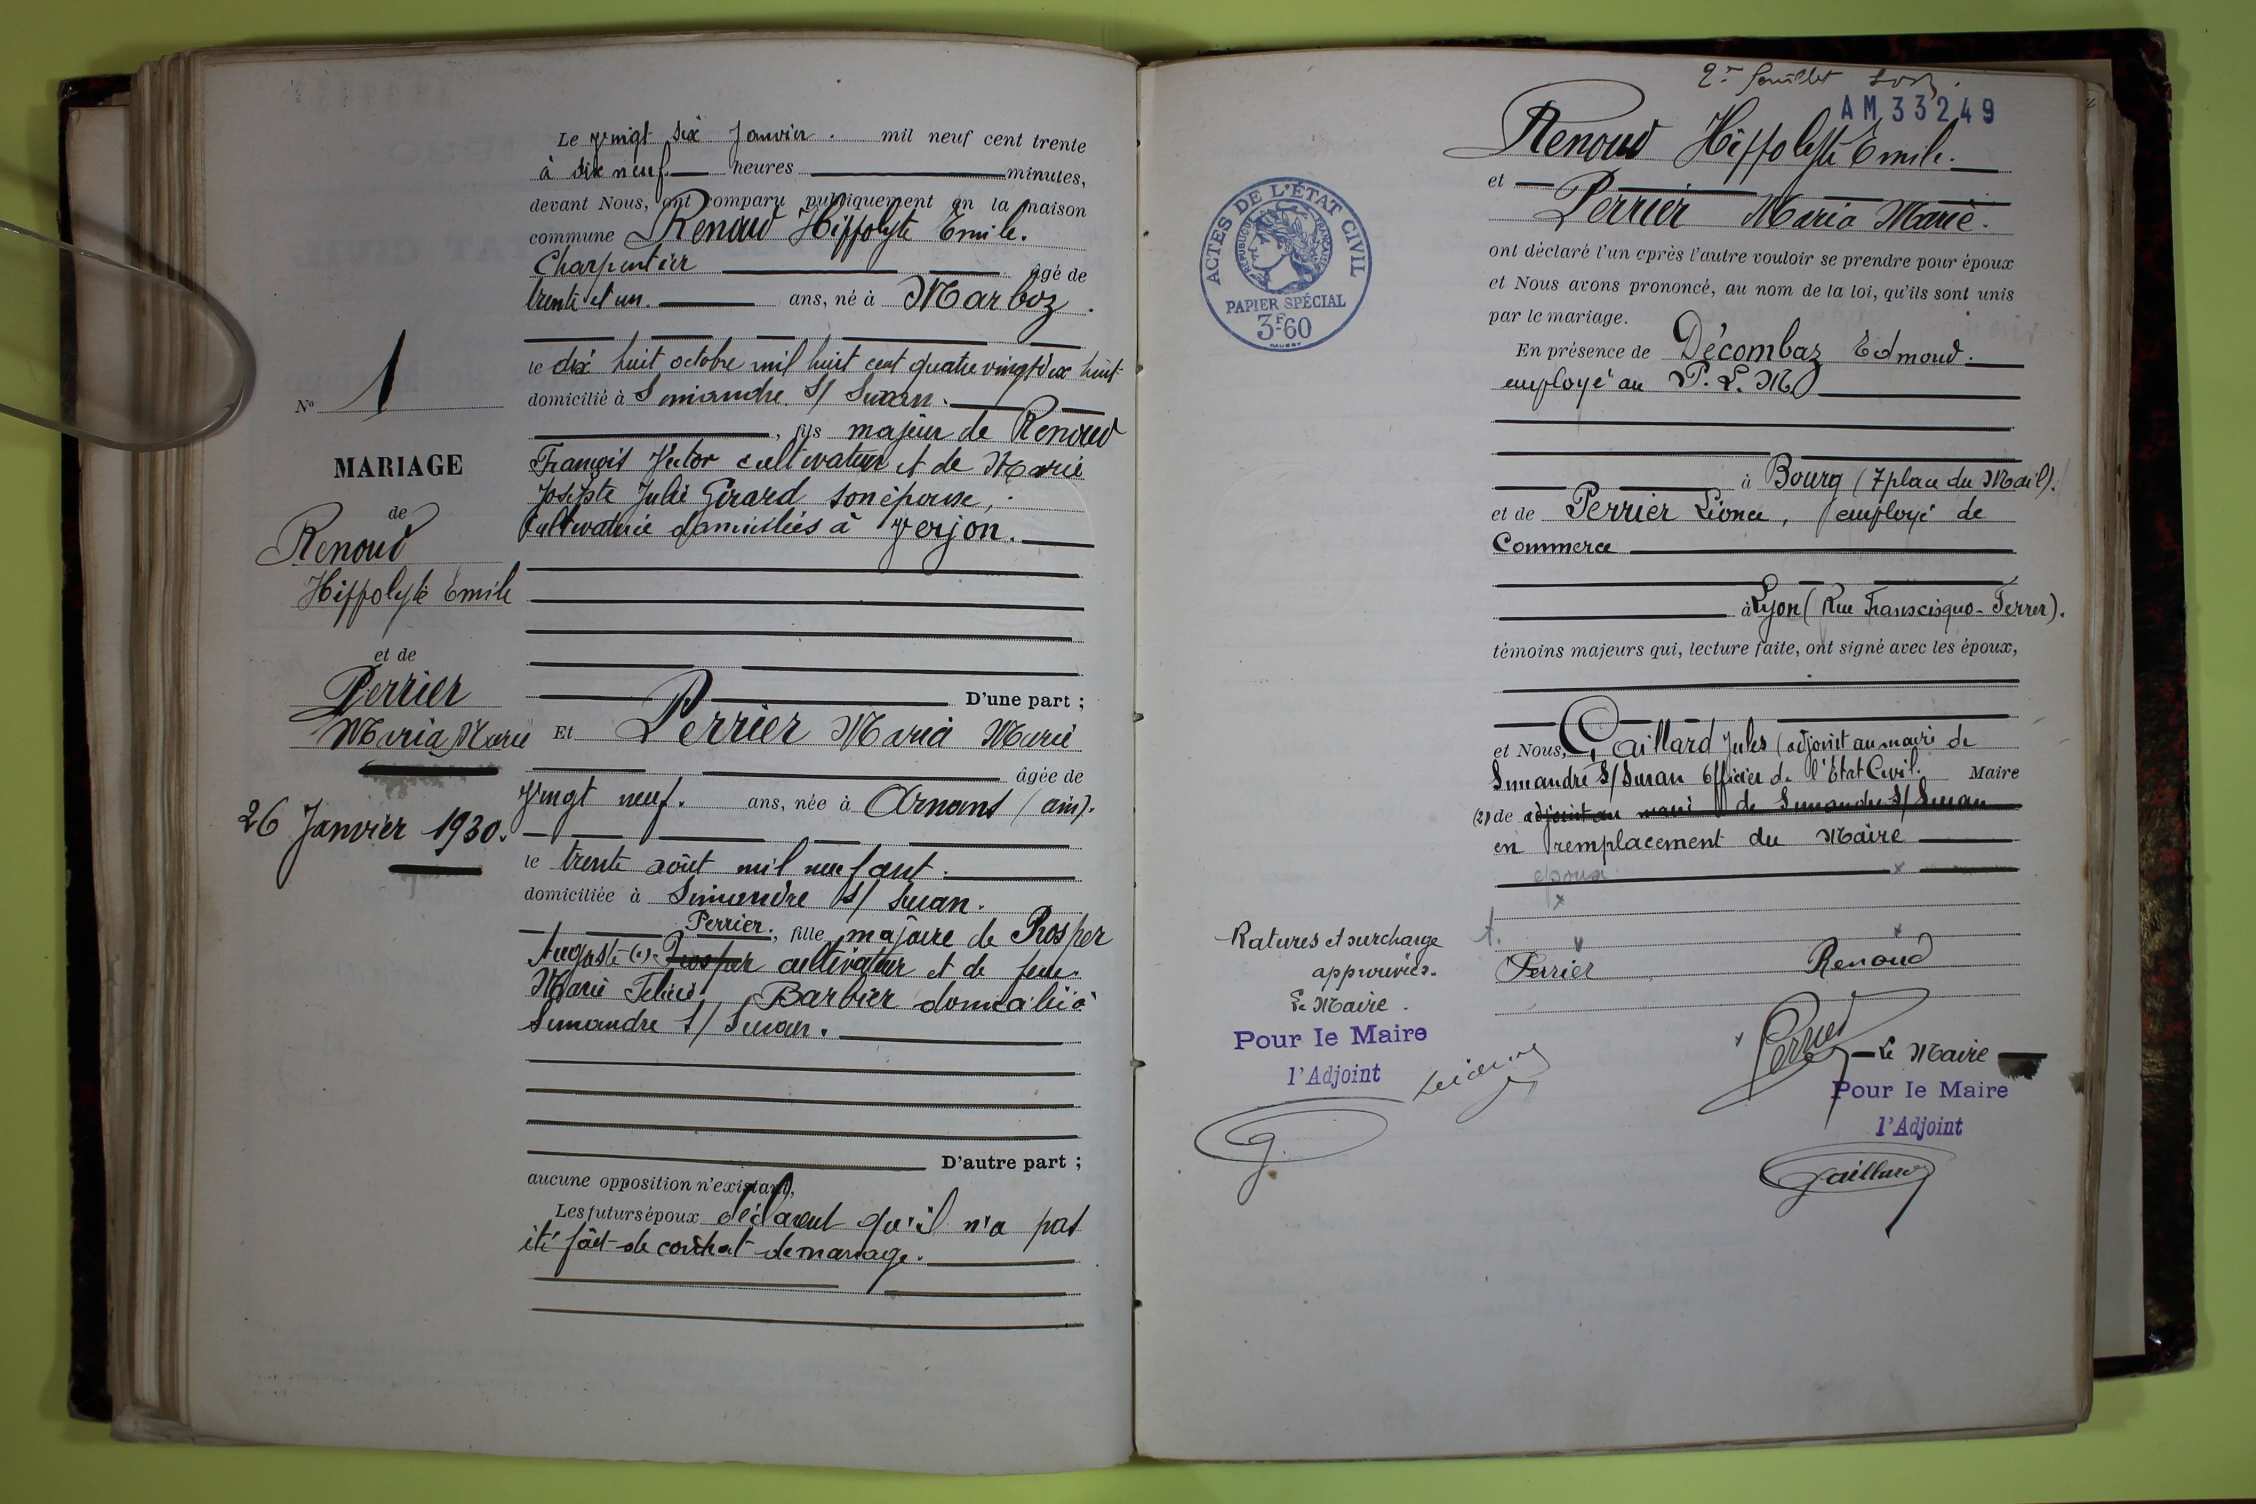 Le vingt six Janvier. mil neuf cent trente
à dix neuf heures minutes,
devant Nous, ont comparu publiquement en la maison
commune Renoud Hippolyte Emile.
Charpentier âgé de
trente et un. ans, né à Marboz.
le dix huit octobre mil huit cent quatre vingt dix huit
domicilié à Simandre S/ Suran.
, fils majeur de Renoud
François Victor cultivateur et de Marie
Josèphte Julie Girard son épouse,
Cultivatrice domiciliés à Verjon.
D'une part ;
Et Perrier Maria Marie
âgée de
Vingt neuf. ans, née à Arnans (ain).
le trente août mil neuf cent.
domiciliée à Simandre S/ Suran.
Perrier, fille majeure de Prosper
Auguste (1) Prosper cultivateur et de feue
Marie Félicie Barbier domicilié à
Simandre S/ Suran.
D'autre part ;
aucune opposition n'existant,
Les futurs époux déclarent qu'il n'a pas
été fait de contrat de mariage.
No 1
MARIAGE
de
Renoud
Hippolyte Emile
et de
Perrier
Maria Marie
26 Janvier 1930.
2e feuillet
AM 33249
Renoud Hippolyte Emile.
et
Perrier Maria Marie.
ont déclaré l'un après l'autre vouloir se prendre pour époux
et Nous avons prononcé, au nom de la loi, qu'ils sont unis
par le mariage.
En présence de Décombaz Edmond.
employé au P. L. M
à Bourg (7 place du Mail).
et de Perrier Léonce, employé de
Commerce
à Lyon (Rue Franscisquo-Ferrer).
témoins majeurs qui, lecture faite, ont signé avec les époux,
et Nous, Gaillard Jules (adjoint au maire de
Simandre S/Suran Officier de l'Etat Civil. Maire
(2) de adjoint au maire de Simandre S/ Suran
en remplacement du Maire
époux
Perrier Renoud
Perrier
Le Maire
Pour le Maire
l'Adjoint
Gaillard
ACTES DE L'ÉTAT CIVIL
RÉPUBLIQUE FRANÇAISE
PAPIER SPÉCIAL
3F60
Ratures et surcharge
approuvées.
Le Maire.
Pour le Maire
l'Adjoint
G.